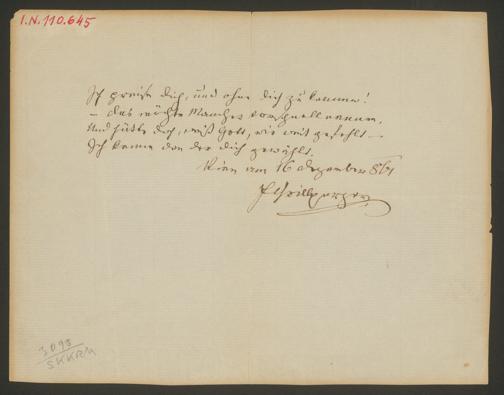 I.N. 110.645
Ich preise dich, und ohne dich zu kennen!
– das möchte Mancher vorschnell nennen,
Und hätte doch, weiß Gott, wie weit gefehlt –
Ich kenne den der dich gewählt.
Wien am 16 Dezember 861
Grillparzer
3093
SKKRM